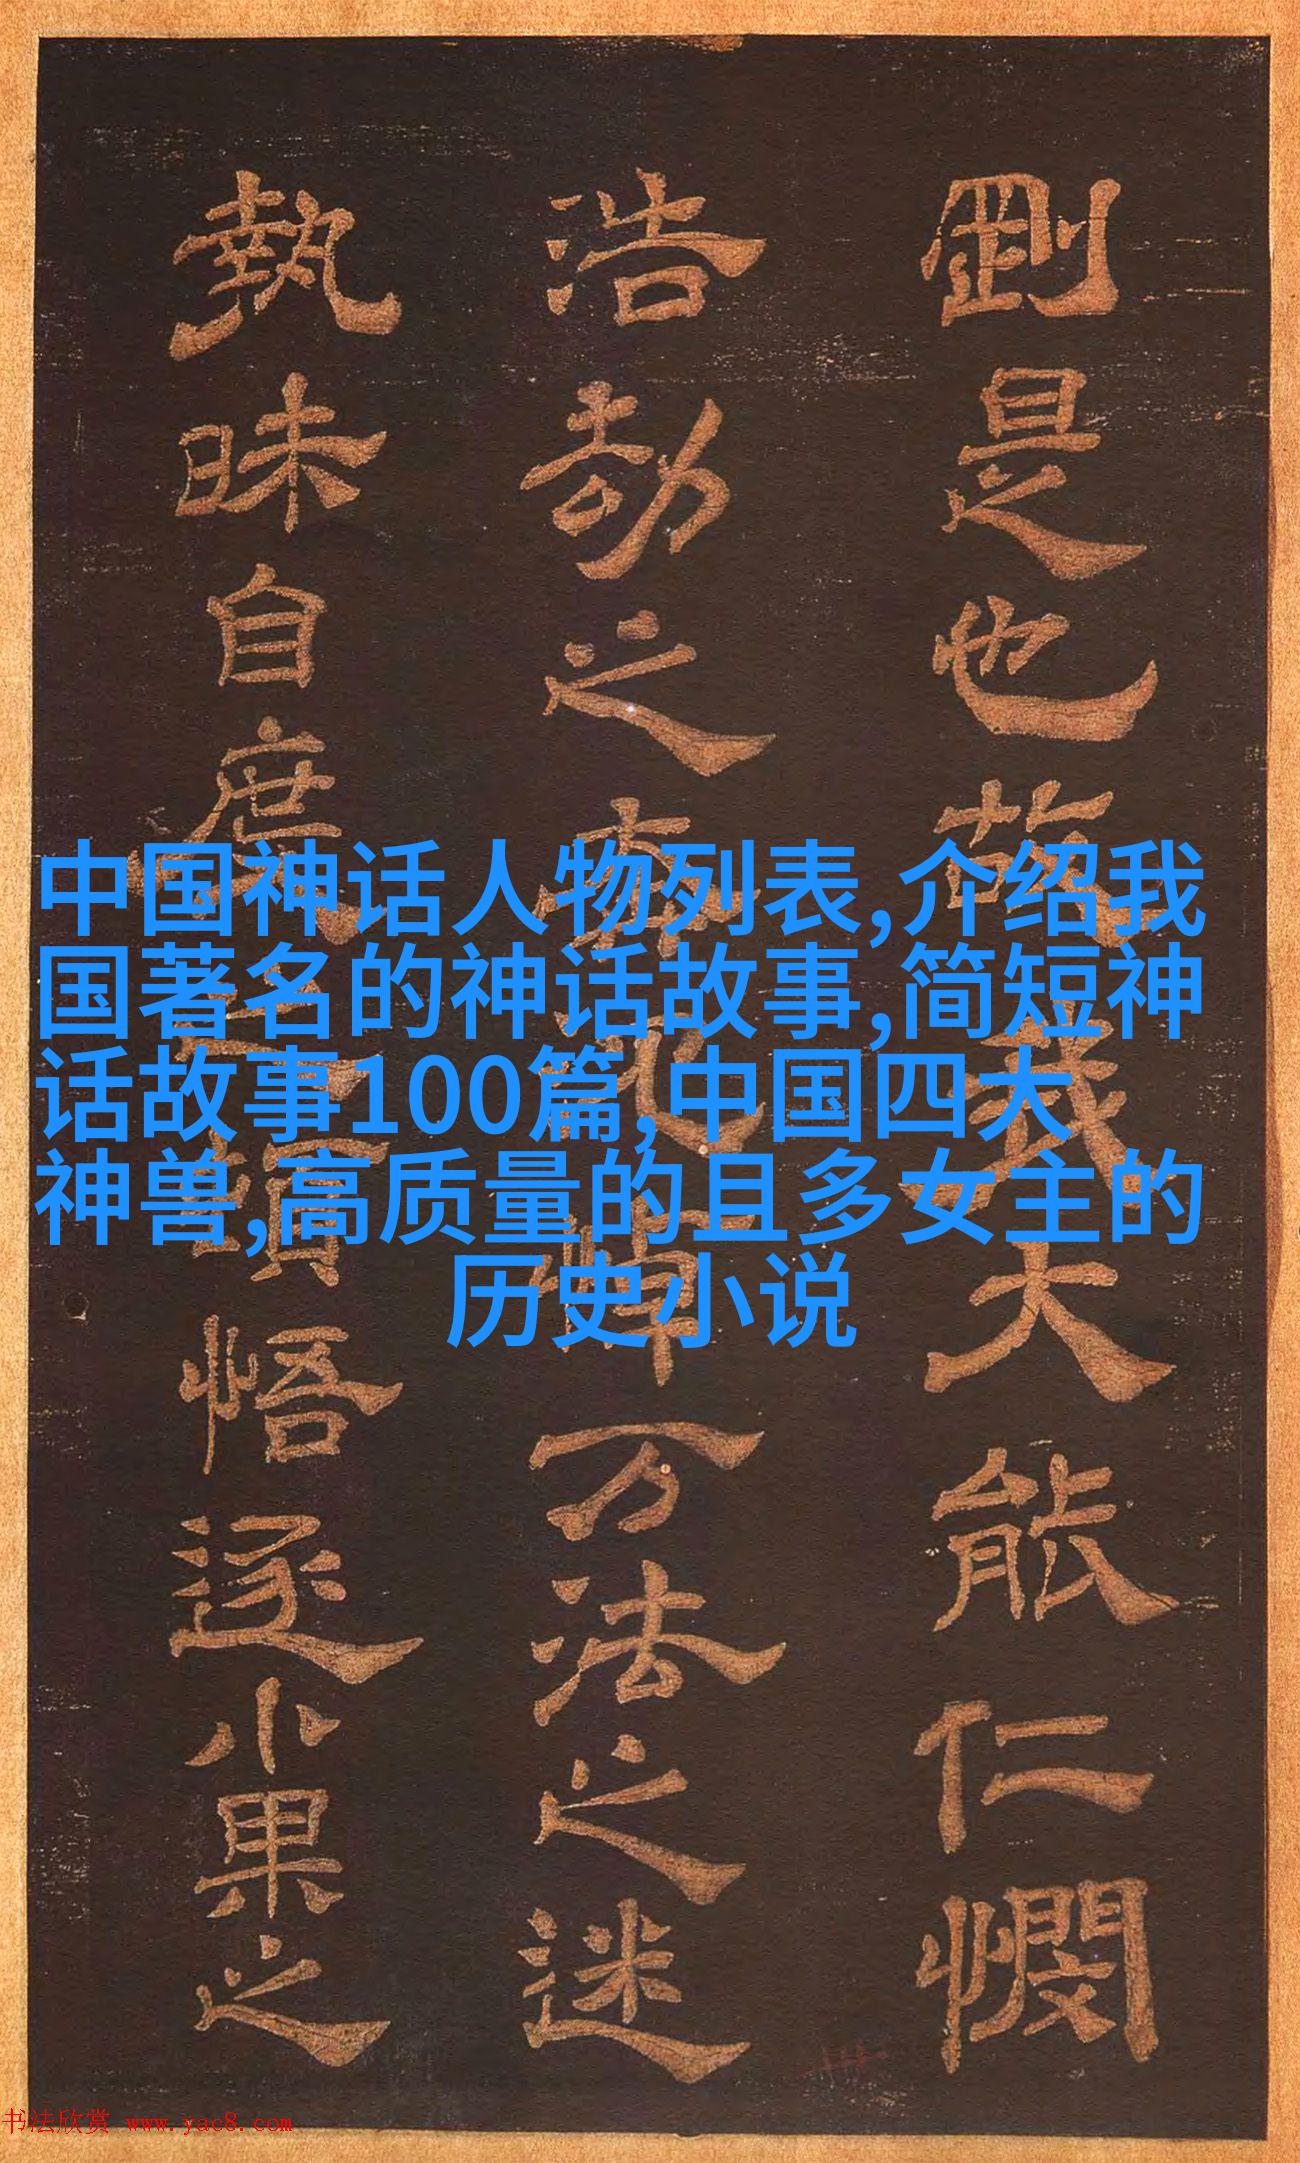 剛是也故我大能仁憫
浩劫之凡悼万法之迷
執昧自之頓悟逐小果之
中国神话人物列表,介绍我
国著名的神话故事,简短神
话故事100篇,中国四大
神兽,高质量的且多女主的
历史小说
书法欣赏 www.yac8.com